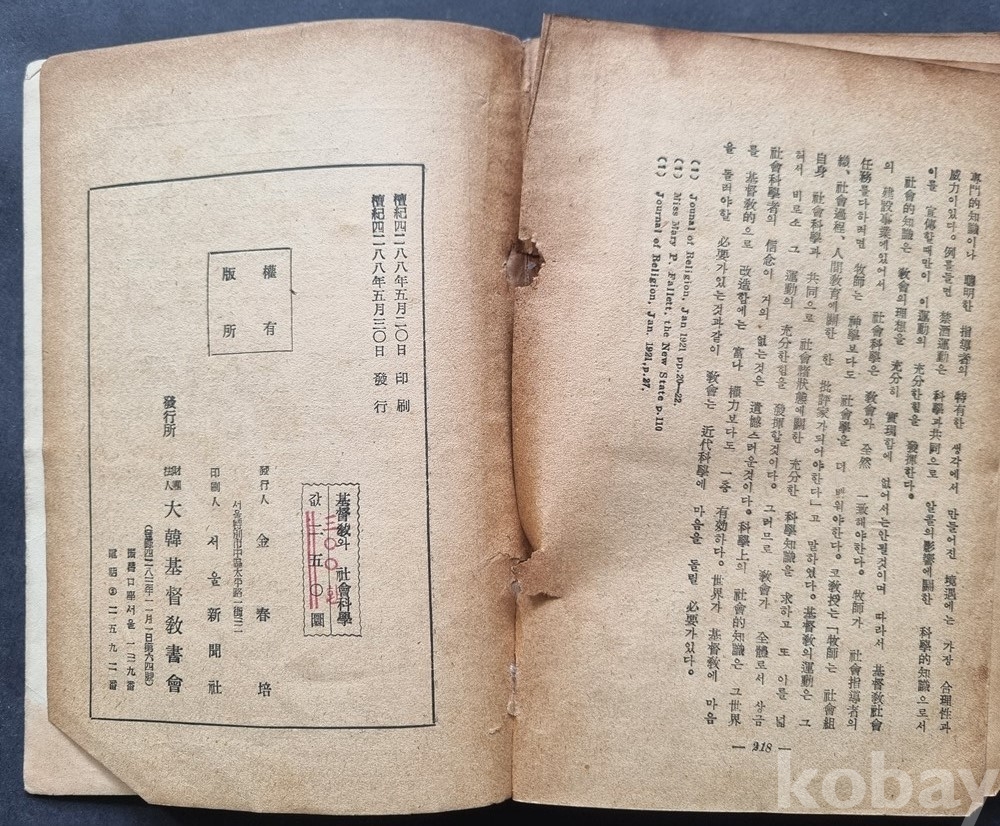 專門的知識이나 聰明한 指導者의 特有한 생각에서 만들어진 境遇에는 가장 合理性과
威力이있다. 例를들면 禁酒運動은 科學과共同으로 알콜의影響에關한 科學的知識으로서
이를 宣傳할때만이 이運動의 充分한힘을 發揮한다.
社會的知識은 敎會의理想을 充分히 實現함에 없어서는안될것이며 따라서 基督敎社會
의 建設事業에있어서 社會科學은 敎會와 全然 一致해야한다. 牧師가 社會指導者의
任務를다하려면 牧師는 神學보다도 社會學을 더 배워야한다. 코敎授는 「牧師는 社會組
織、社會過程、人間敎育에關한 한 批評家가되어야한다」고 말하였다. 基督敎의運動은 그
自身 社會科學과 共同으로 社會諸狀態에關한 充分한 科學知識을 求하고 또 이를 넓
혀서 비로소 그 運動의 充分한힘을 發揮할것이다. 그러므로 敎會가 全體로서 상금
社會科學者의 信念이 거의 없는것은 遺憾스러운것이다. 科學上의 社會的知識은 그世界
를 基督敎的으로 改造함에는 富나 權力보다도 一層 有効하다. 世界가 基督敎에 마음
을 돌려야할 必要가있는것과같이 敎會는 近代科學에 마음을 돌릴 必要가있다.
(1) Jounal of Religion, Jan 1921 pp.20—22.
(1) Miss Mary P. Fallett, the New State p.110
(1) Journal of Religion, Jan. 1921,p.27,
— 218 —
檀紀四二八八年五月二〇日 印刷
檀紀四二八八年五月三〇日 發行
權有
版所
基督敎와 社會科學
값 圜
三〇〇환
發行人 金春培
印刷人 서울新聞社
發行所 財團法人 大韓基督敎書會
(登錄四二八三年一一月一日第六四號)
振替口座서울 一三九番
電話 ③ 二五九二番
kobay